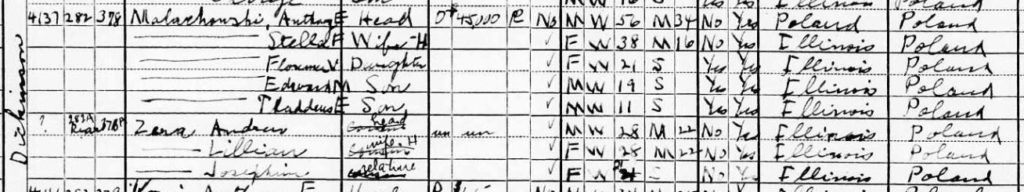 Dickinson
4137 282 378 Malachowski Anthony F Head O $45,000 R No M W 56 M 34 No Yes Poland Poland
Stella F Wife-H F W 38 M 16 No Yes Illinois Poland
Florence V Daughter F W 21 S Yes Yes Illinois Poland
Edward M Son M W 19 S Yes Yes Illinois Poland
Thaddeus E Son M W 11 S Yes Yes Illinois Poland
? 283A Rear Andrew head un un M W 28 M 22 No Yes Illinois Poland
Lillian wife-H F W 28 M 22 No Yes Illinois Poland
Josephine relative F W S No Yes Illinois Poland